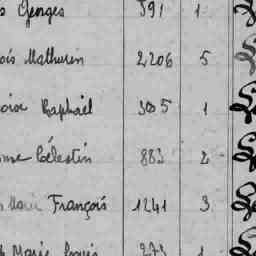 Georges 591 1
Mathurin 2206 5
Raphaël 305 1
Célestin 883 2
Marie François 1241 3
Marie Louis 273 1